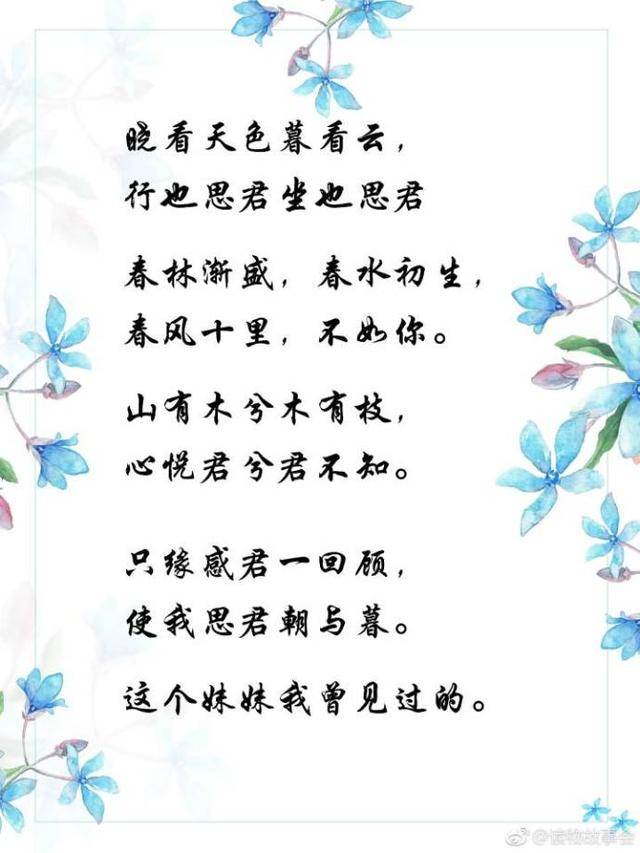 晓看天色暮看云，
行也思君坐也思君
春林渐盛，春水初生，
春风十里，不如你。
山有木兮木有枝，
心悦君兮君不知。
只缘感君一回顾，
使我思君朝与暮。
这个妹妹我曾见过的。
@读物故事会